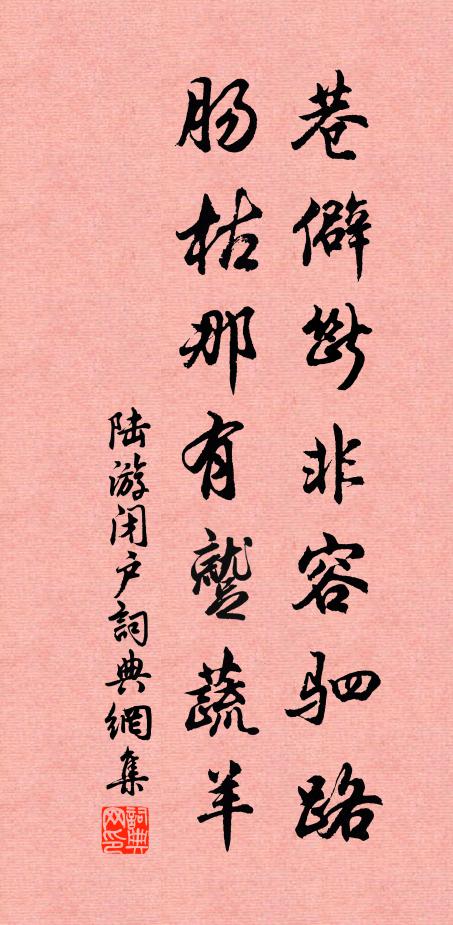 巷僻斷非容驷路
肠枯那有蹵蔬羊
陆游闭户詞典網集
詞典网印